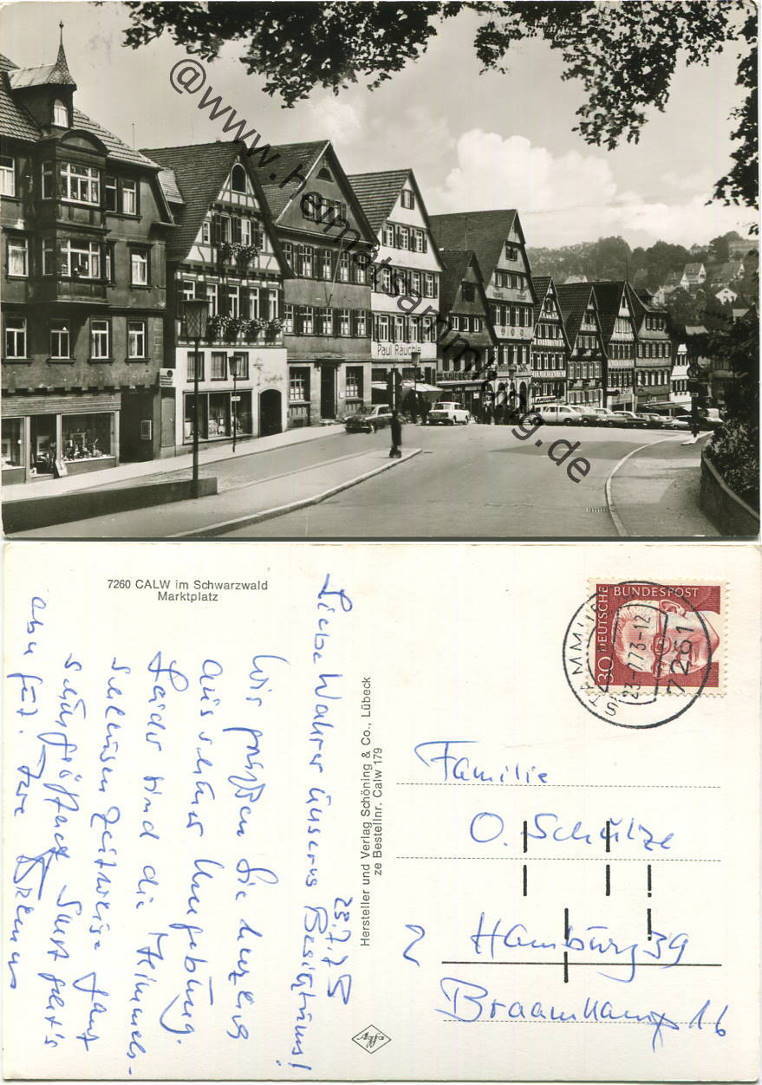 @www.heimatsammlung.de
Paul Räuchle
7260 CALW im Schwarzwald
Marktplatz
Liebe Wahrer unseres Besitztums!
28.7.73
Wir grüßen Sie herzlich
aus schöner Umgebung.
Leider sind die Himmels-
schleusen zeitweise ganz
schön geöffnet. Sonst geht's
aber gut. Ihre
Hersteller und Verlag Schöning & Co., Lübeck
ze Bestellnr. Calw 179
DEUTSCHE BUNDESPOST
30
23.-7.73-12
7261
Familie
O. Schulze
2 Hamburg 39
Braamkamp 16
Agfa